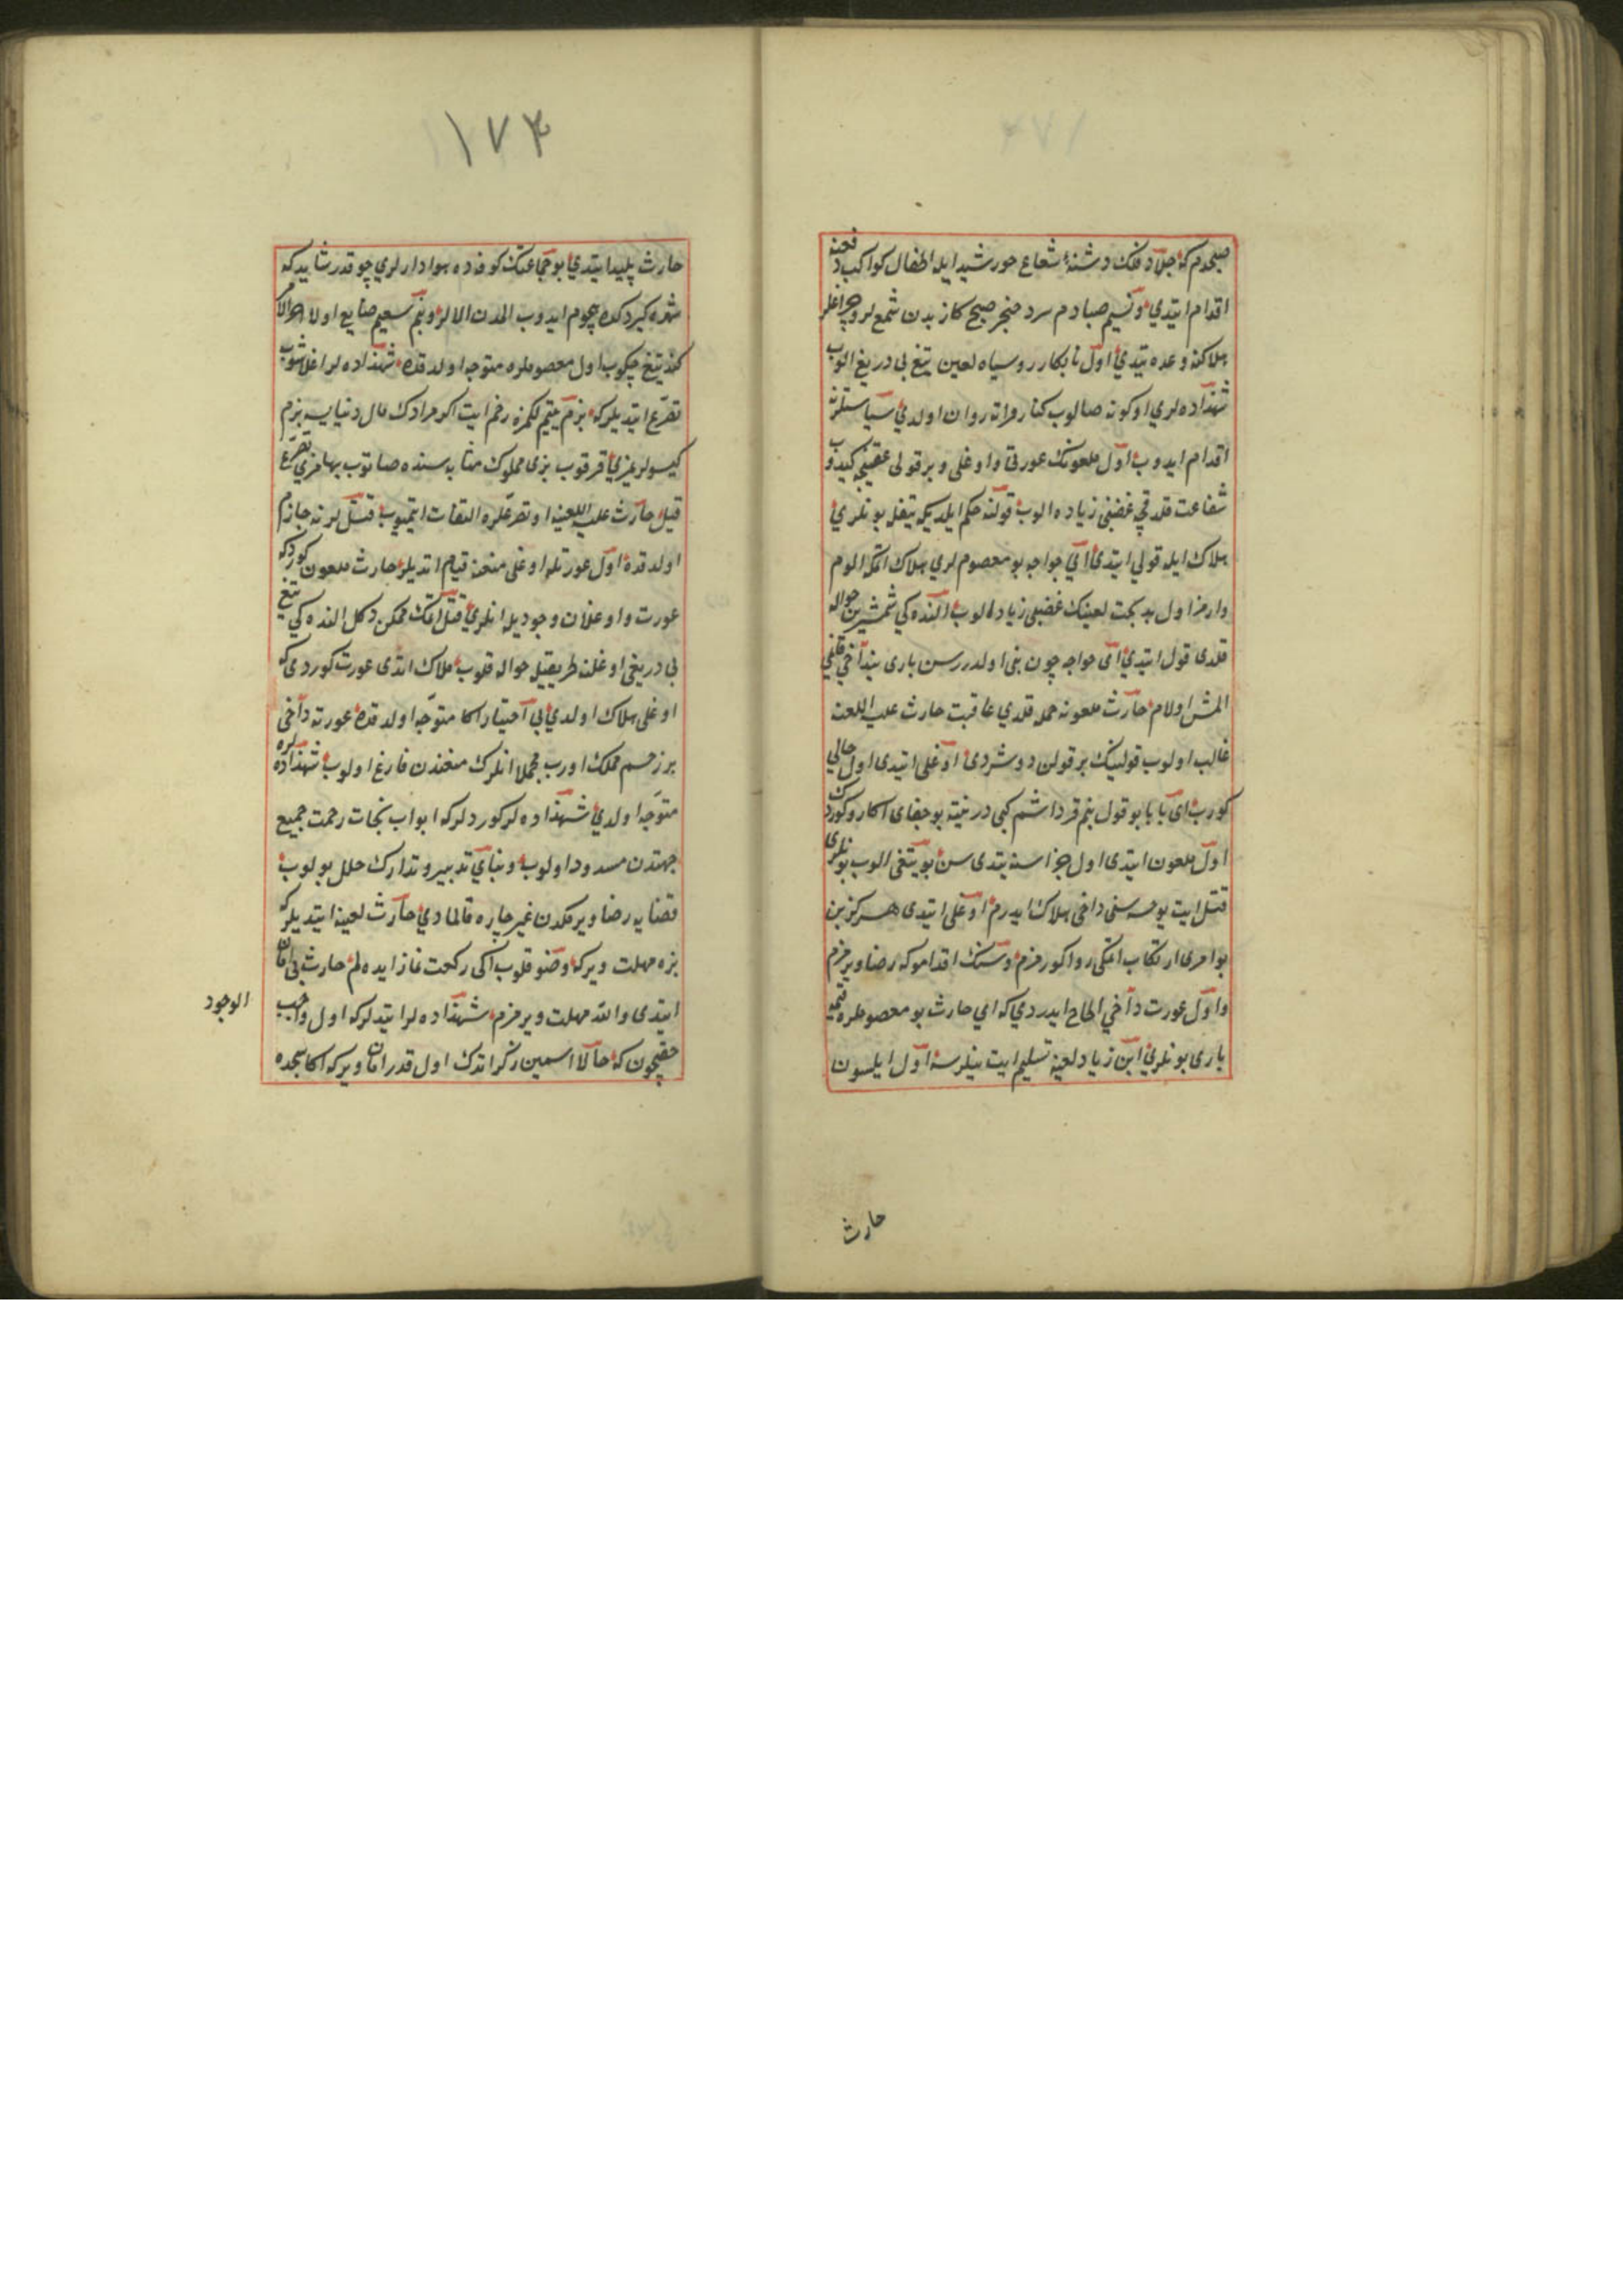 صبحدم كه جلاد فلك دشنهٔ شعاع خورشيد ايله اطفال كواكب دفعنه
اقدام ايتدي و نسيم صبادم سرد خنجر صبح كاذبدن شمع لر و چراغلر
هلاكنه وعده يتدي اول نابكار روسياه لعين تيغ بي دريغ الوب
شهزاده لري اوكونه صالوب كنار فراته روان اولدي سياستلرنه
اقدام ايدوب اول ملعونك عورتي و اوغلى و بر قولى عقبنجه كيدوب
شفاعت قلدقجه غضبى زياده الوب قولنه حكم ايلديكه تيغله بونلري
هلاك ايله قولي ايتدي اي خواجه بو معصوم لري هلاك اتمكه الوم
وارمز اول بدبخت لعينك غضبى زياده الوب النده كي شمشيرين حواله
قلدى قول ايتدي اى خواجه چون بنى اولدررسن بارى بندن آخي قانمي
المش اولام حارث ملعونه حمله قلدي عاقبت حارث عليه اللعنه
غالب اولوب قولينك بر قولن دوشردى اوغلى ايتدى اول حالي
كورب اى بابا بو قول بنم قرداشم كبى در نيته بو جفاى اكا روا كوردك
اول ملعون ايتدى اول جزاسنه يتدى سن بو تيغى الوب بونلرى
قتل ايت يوخسه سنى داخى هلاك ايدرم اوغلى ايتدى هركز بن
بو امرى ارتكاب اتمكى روا كورمزم و سنك اقدامكه رضا ويرمزم
و اول عورت دآخي الحاح ايدردي كه اي حارث بو معصوملره قيمه
بارى بونلري ابن زياد لعينه تسليم ايت نيلرسه اول ايلسون
حارث
١٧٣
حارث پليد ايتدي بو جماعتك كوفه ده هوادارلري چوقدر شايد كه
شهره كيردكده هجوم ايدوب الدن الالر و بنم سعيم ضايع اولا
كندو تيغ چكوب اول معصوملره متوجه اولدقده شهزاده لر اغلاشوب
تضرع ايتديلر كه بزم يتيملكمزه رحم ايت اكر مرادك مال دنيا ايسه بزم
كيسولريمزي قرقوب بزى مملوك مثابه سنده صاتوب بهامزي تصرف
قيل حارث عليه اللعنه او تضرعلره التفات ايتميوب قتللرنه جازم
اولدقده اول عورتله اوغلى منعنه قيام اتديلر حارث ملعون كوردكه
عورت و اوغلان وجوديله انلري قتل اتمك ممكن دكل النده كي تيغ
بى دريغى اوغلنه طريقيله حواله قلوب هلاك اتدى عورت كوردى كه
اوغلى هلاك اولدي بي اختيار اكا متوجه اولدقده عورته دآخى
بر زخم مهلك اورب مجملا انلرك منعندن فارغ اولوب شهزاده لره
متوجه اولدي شهزاده لر كوردلر كه ابواب نجات رحمت جميع
جهتدن مسدود اولوب و بناي تدبير و تدارك خلل بولوب
قضايه رضا ويرمكدن غير چاره قالمادي حارث لعينه ايتديلر كه
بزه مهلت وير كه وضو قلوب اكى ركعت نماز ايده لم حارث بى امان
ايتدى والله مهلت ويرمزم شهزاده لر ايتدلر كه اول واجب
حقيچون كه حالا اسمين ذكر اتدك اول قدر امان وير كه اكا سجده
الوجود